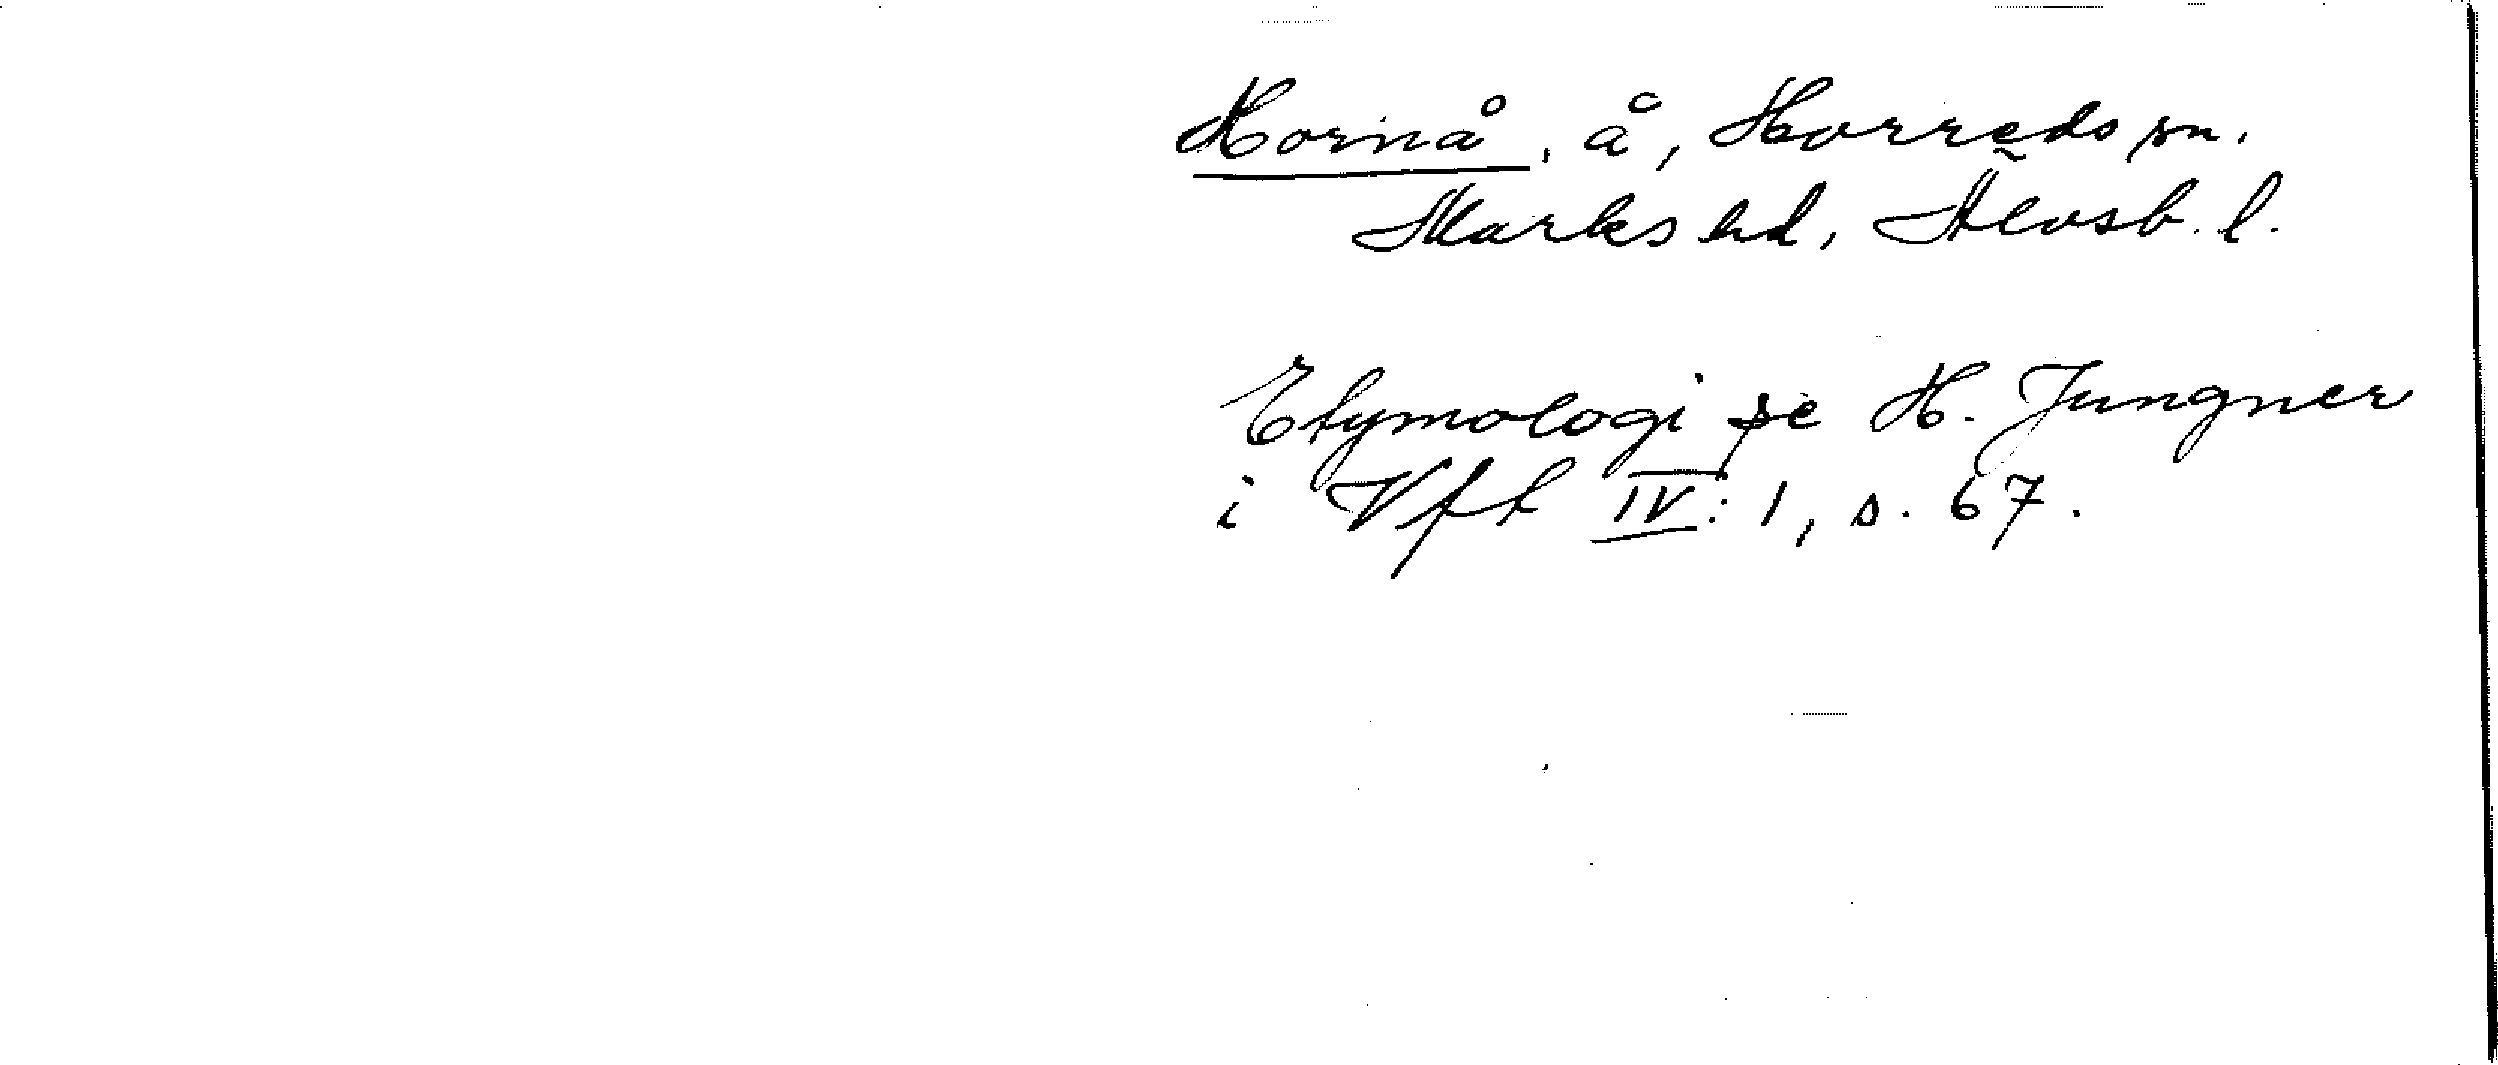 Hornå, å, Horreds sn.
Marks hd, Älvsb. l.
Etymologi se H. Jungner
i Vft IV: 1, s. 67.